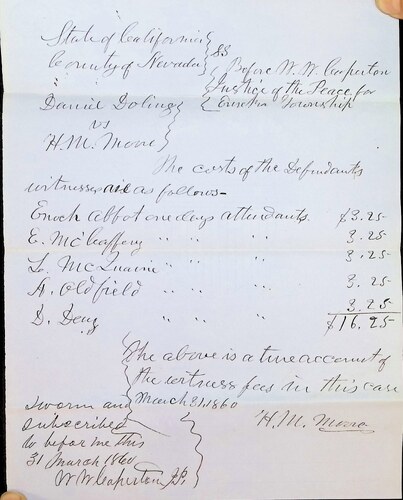 State of California } SS
County of Nevada }
Before W. W. Caperton
Justice of the Peace for
Eureka Township
Daniel Doling
vs
H. M. Moore
The costs of the Defendants
witnesses are as follows—
Enoch Abbot one days attendants. $3.25
E. McCaffery " " " 3.25
L. McInavin " " " 3.25
A. Oldfield " " " 3.25
D. Deny " " " 3.25
$16.25
The above is a true account of
the witness fees in this case
March 31, 1860
H. M. Moore
Sworn and
subscribed
to before me this
31 March 1860
W W Caperton J.P.